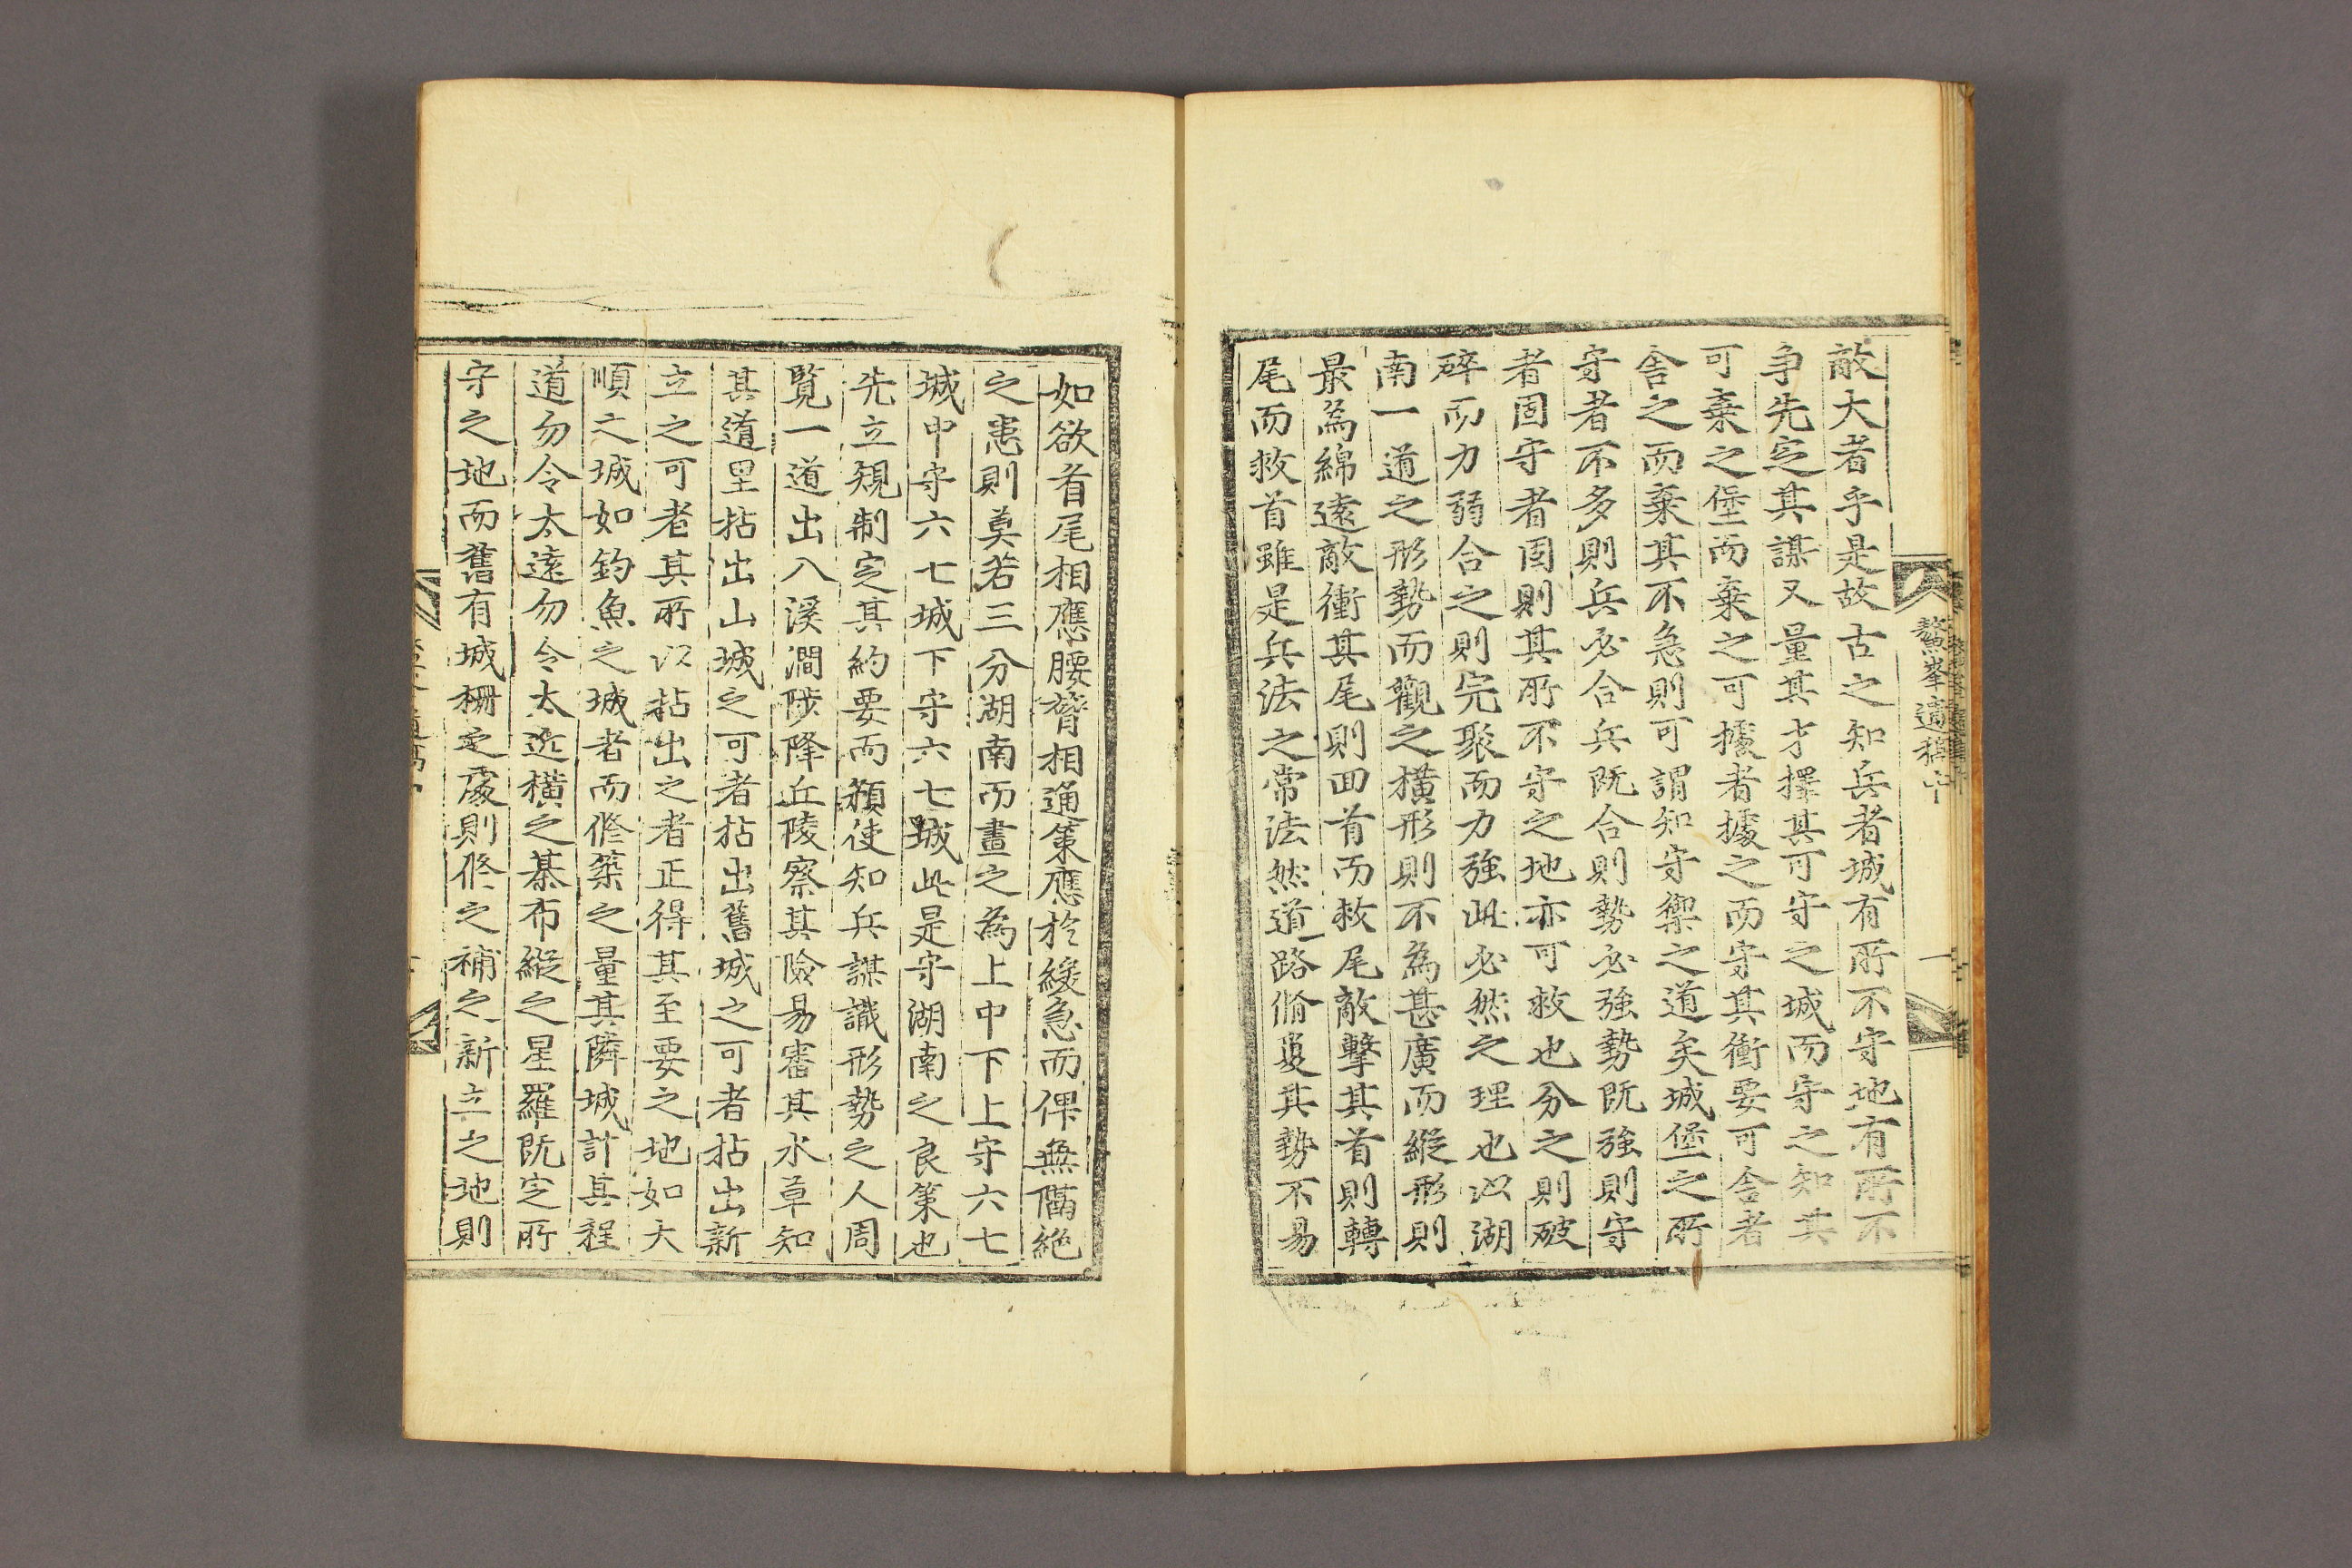 鰲峯遺稿中
一
敵大者乎是故古之知兵者城有所不守地有所不
争先定其謀又量其才擇其可守之城而守之知其
可棄之堡而棄之可據者據之而守其衝要可舍者
舍之而棄其不急則可謂知守禦之道矣城堡之所
守者不多則兵必合兵既合則勢必強勢既強則守
者固守者固則其所不守之地亦可救也分之則破
碎而力弱合之則完聚而力強此必然之理也以湖
南一道之形勢而觀之橫形則不為甚廣而縱形則
最為綿遠敵衝其尾則回首而救尾敵擊其首則轉
尾而救首雖是兵法之常法然道路脩夐其勢不易
如欲首尾相應腰膂相通策應於緩急而俾無隔絶
之患則莫若三分湖南而畫之為上中下上守六七
城中守六七城下守六七城此是守湖南之良策也
先立規制定其約要而須使知兵謀識形勢之人周
覧一道出八溪澗陟降丘陵察其險易審其水草知
其道里拈出山城之可者拈出舊城之可者拈出新
立之可者其所以拈出之者正得其至要之地如大
順之城如釣魚之城者而修築之量其隣城計其程
道勿令太遠勿令太近橫之棊布縱之星羅既定所
守之地而舊有城柵之處則修之補之新立之地則